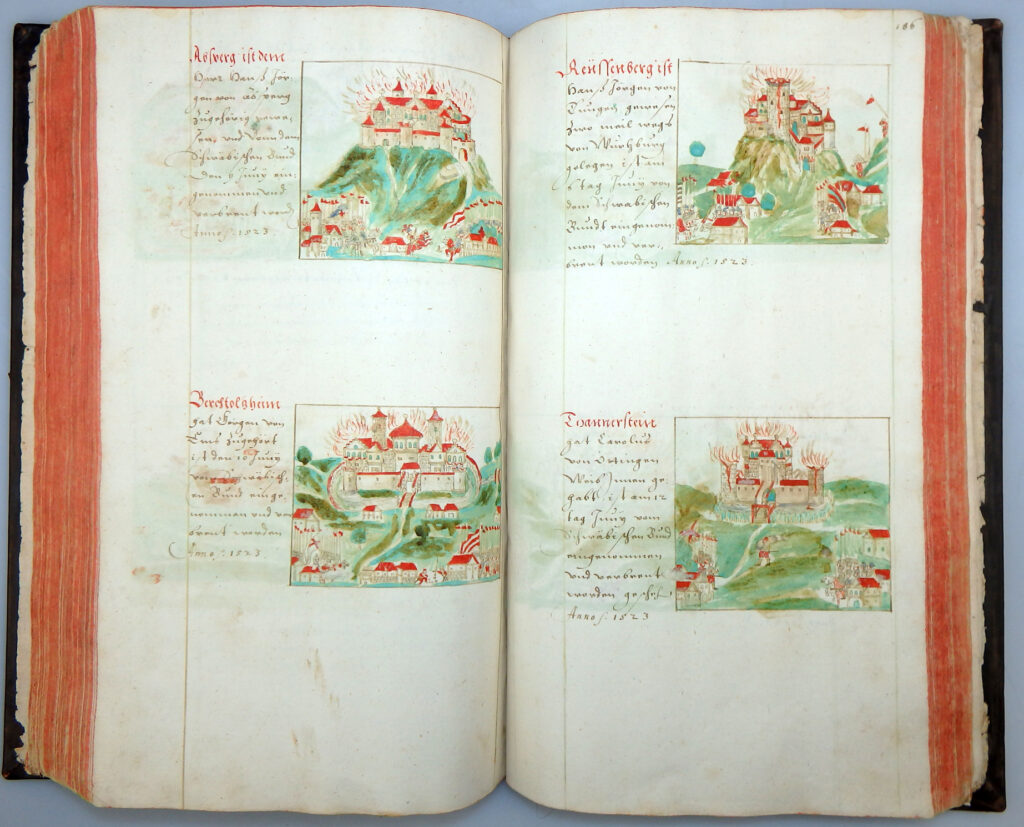 Absberg ist dem
Herr Hans Jör-
gen von Absberg
zugehörig gewe-
sen, vnd von dem
Schwäbischen Bund
den 9 Junij ein-
genommen vnd
verbrent word
Anno 1523
Berchtolzheim
hat Görgen von
zugehört
ist den 10 Junij
vom Schwäbisch-
en Bund einge-
nommen vnd ver
brent worden
Anno 1523
186
Reüssenberg ist
Hans Jörgen von
Tüngen gewesen
zwo meil wegs
von Würtzburg
gelegen ist am
tag Junij von
dem Schwäbischen
Bundt eingenom
men vnd ver-
brent worden Anno 1523.
Thannerstein
hat Carolus
von Öttingen
innen ge-
habt, ist am 12
tag Junij vom
Schwäbischen Bund
eingenommen
vnd verbrent
worden
Anno 1523